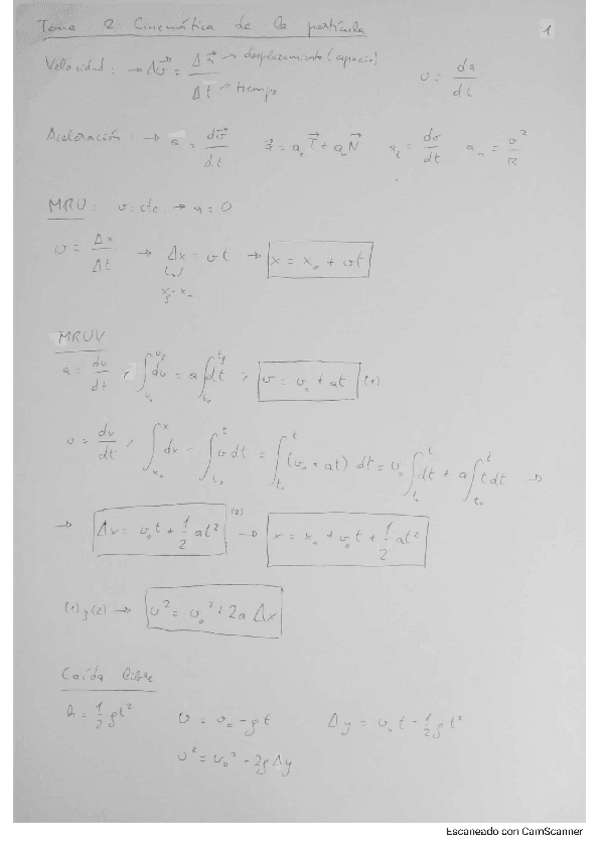 Tema 2 Cinemática de la partícula 1
Velocidad: → Δv⃗ = Δr⃗ / Δt → desplazamiento (espacio) → tiempo v = dx/dt
Aceleración: → a = dv⃗/dt a⃗ = aₜT⃗ + aₙN⃗ aₜ = dv/dt aₙ = v²/R
MRU: v: cte → a = 0
v = Δx/Δt → Δx = vt → x = x₀ + vt
MRUV
a = dv/dt ; ∫dv = a∫dt ; v = v₀ + at (1)
v = dx/dt ; ∫dx = ∫v dt = ∫(v₀ + at) dt = v₀∫dt + a∫t dt →
→ Δx = v₀t + 1/2 at² (2) → x = x₀ + v₀t + 1/2 at²
(1) y (2) → v² = v₀² + 2a Δx
Caída libre
h = 1/2 gt² v = v₀ - gt Δy = v₀t - 1/2 gt²
v² = v₀² - 2gΔy
Escaneado con CamScanner